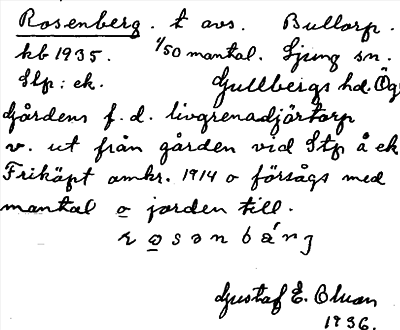 Rosenberg. t avs. Bullorp.
kb 1935. 1/50 mantal. Ljung sn.
Stp: ek. Gullbergs hd. Ög.
Gårdens f. d. livgrenadjärtorp
v. ut från gården vid Stp å ek
Friköpt omkr. 1914 o försågs med
mantal o jorden till.
r o s ə n b ä́ r j
Gustaf E. Oluan
1936.